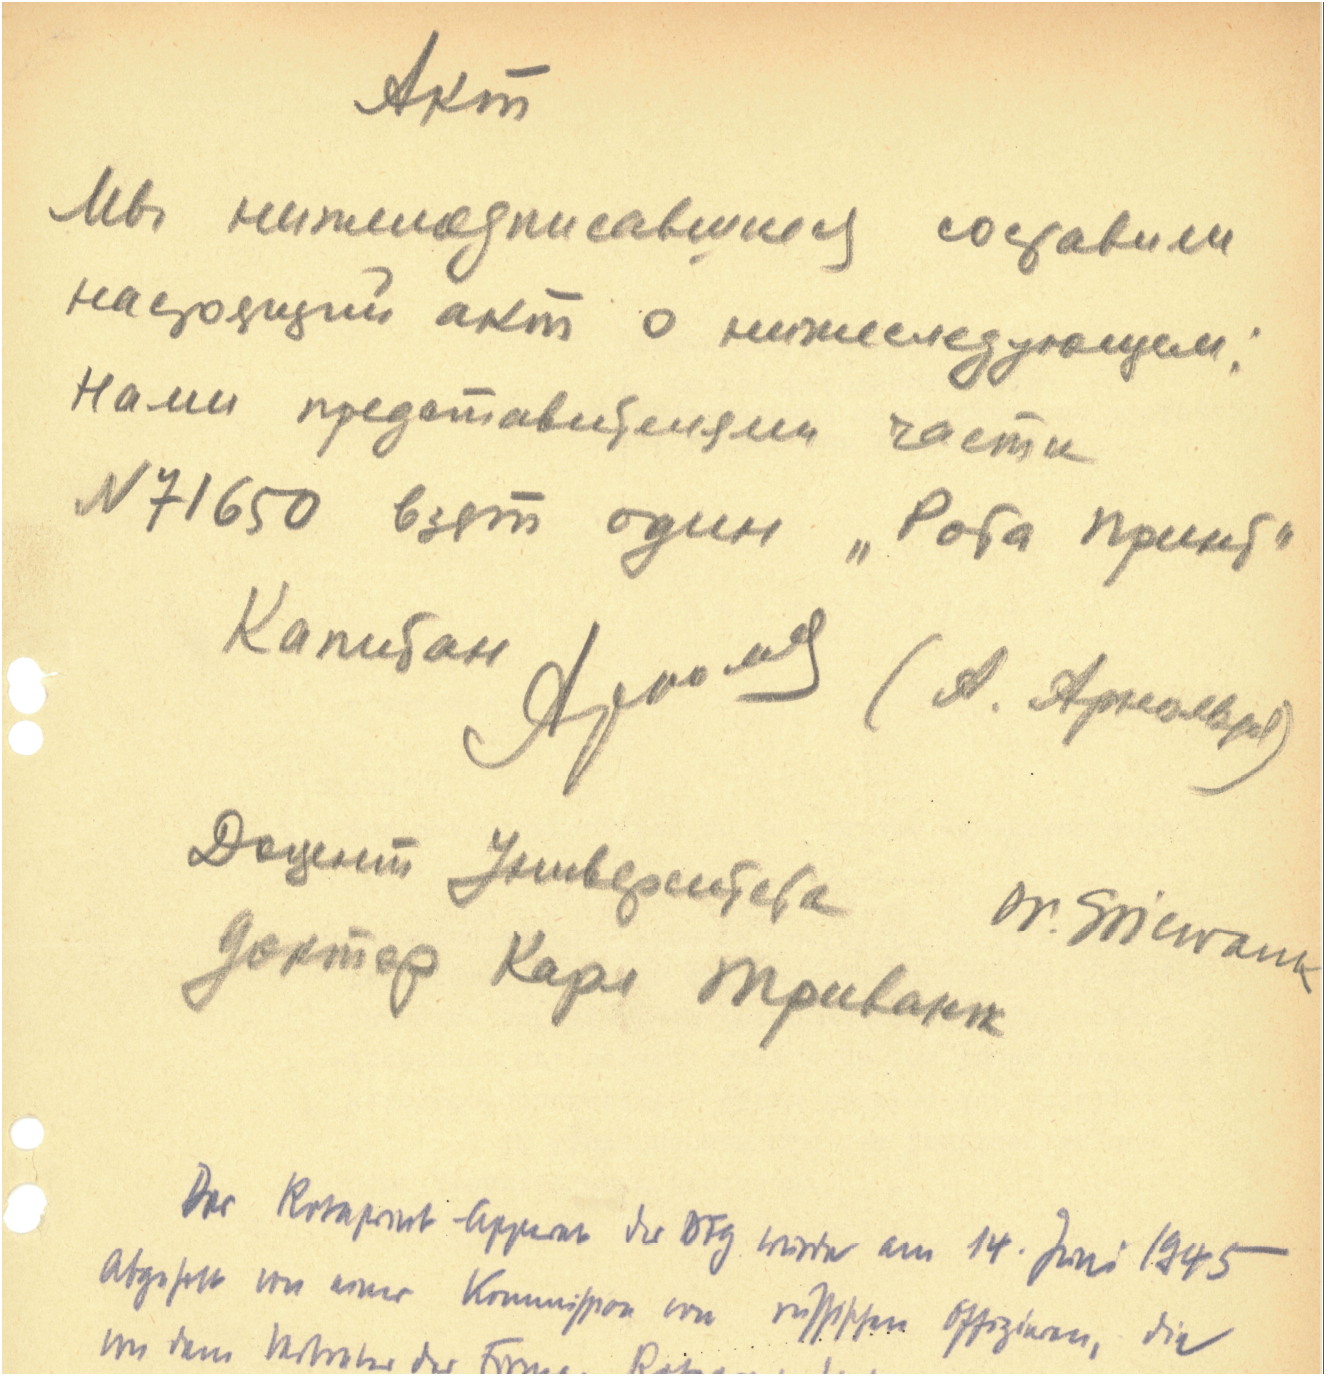 Акт
Мы нижеподписавшиеся составили
настоящий акт о нижеследующем:
Нами представителями части
N71650 взят один „Рота Принт“
Капитан (А. Арнольд)
Доцент Университета Dr. Griewank
Доктор Карл Триванк
Der Rotaprint-Apparat der DFG wurde am 14. Juni 1945
abgeholt von einer Kommission von russischen Offizieren, die
von dem Vertreter der Firma Rotaprint